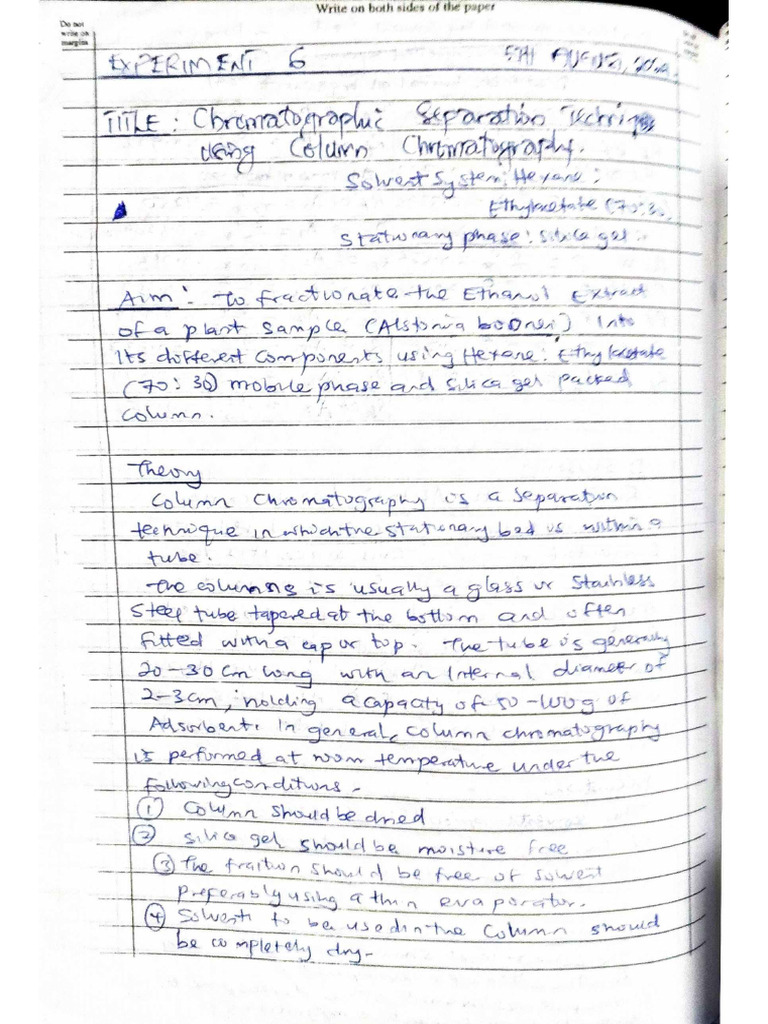 Write on both sides of the paper
Do not
write on
margins
EXPERIMENT 6
5TH AUGUST,
TITLE: Chromatographic Separation
using Column Chromatography.
Solvent System: Hexane:
Ethylacetate (70:30
Stationary phase: Silica gel.
Aim: To fractionate the Ethanol Extract
of a plant sample (Alstonia boonei) Into
Its different components using Hexane: Ethylacetate
(70:30) mobile phase and Silica gel packed
column.
Theory
Column Chromatography is a separation
technique in which the stationary bed is within a
tube.
The columns is usually a glass or Stainless
Steel tube tapered at the bottom and often
fitted with a cap or top. The tube is generally
20-30cm long with an Internal diameter of
2-3cm, holding a capacity of 50-100g of
Adsorbent. In general, column chromatography
is performed at room temperature under the
following conditions-
(1) Column should be dried
(2) Silica gel should be moisture free
(3) The fraition should be free of solvent
preferably using a thin evaporator.
(4) Solvent to be used in the Column should
be completely dry-